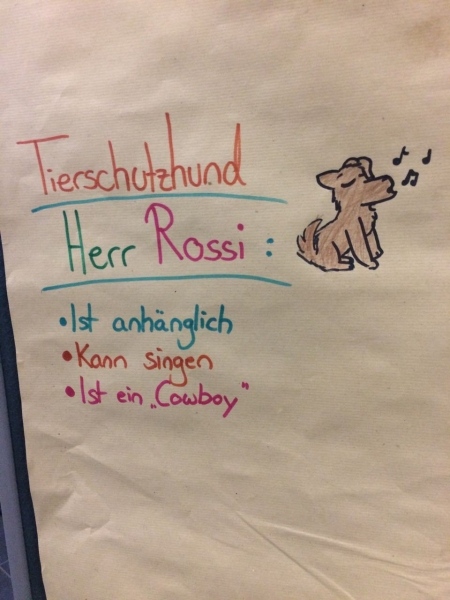 Tierschutzhund
Herr Rossi :
•Ist anhänglich
•Kann singen
•Ist ein „Cowboy"